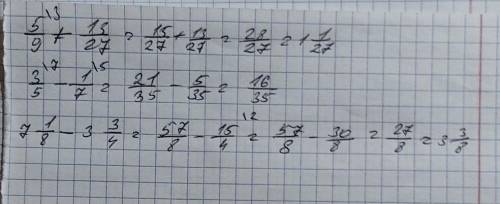 5/9\3 + 13/27 = 15/27 + 13/27 = 28/27 = 1 1/27
3/5\7 - 1/7\5 = 21/35 - 5/35 = 16/35
7 1/8 - 3 3/4 = 57/8 - 15/4\2 = 57/8 - 30/8 = 27/8 = 3 3/8